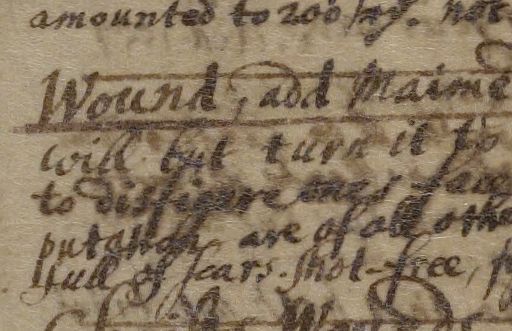 amounted to 200 not
Wound, add Maime
will but turn it to
to disfigure ones
are of all othe
full of scars. shot-free,